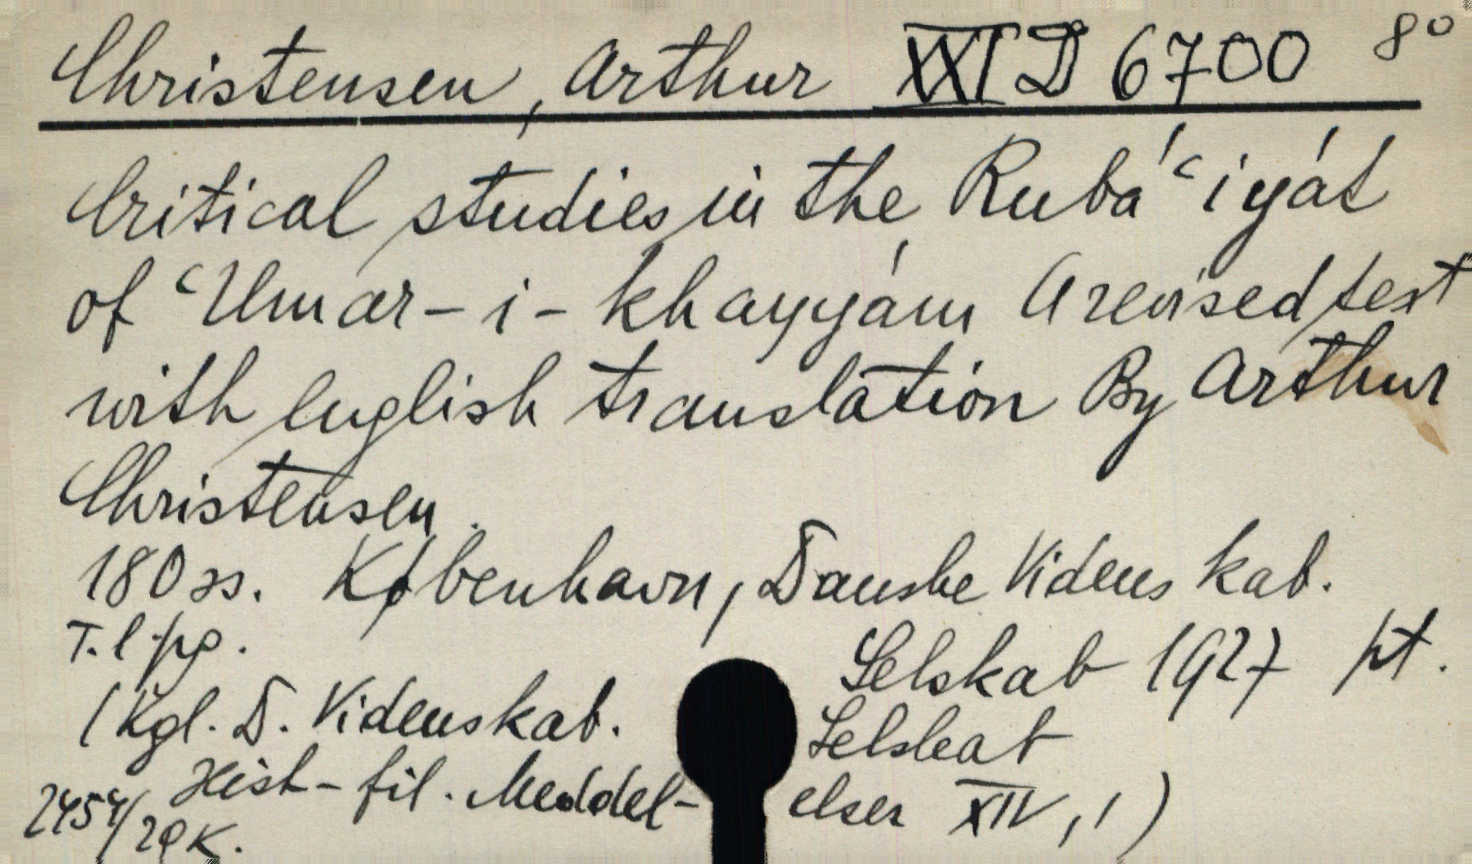 Christensen, Arthur XXI D 6700 8°
Critical studies in the Rubá'ʿiyát
of ʿUmar-i-khayyám A revised text
with english translation By Arthur
Christensen.
180 ss. København, Danske Videns kab.
T. l pg. Selskab 1927 pt.
(Kgl. D. Videnskab. Selskab
Hist-fil. Meddel- elser XIV, 1)
2454/29 K.